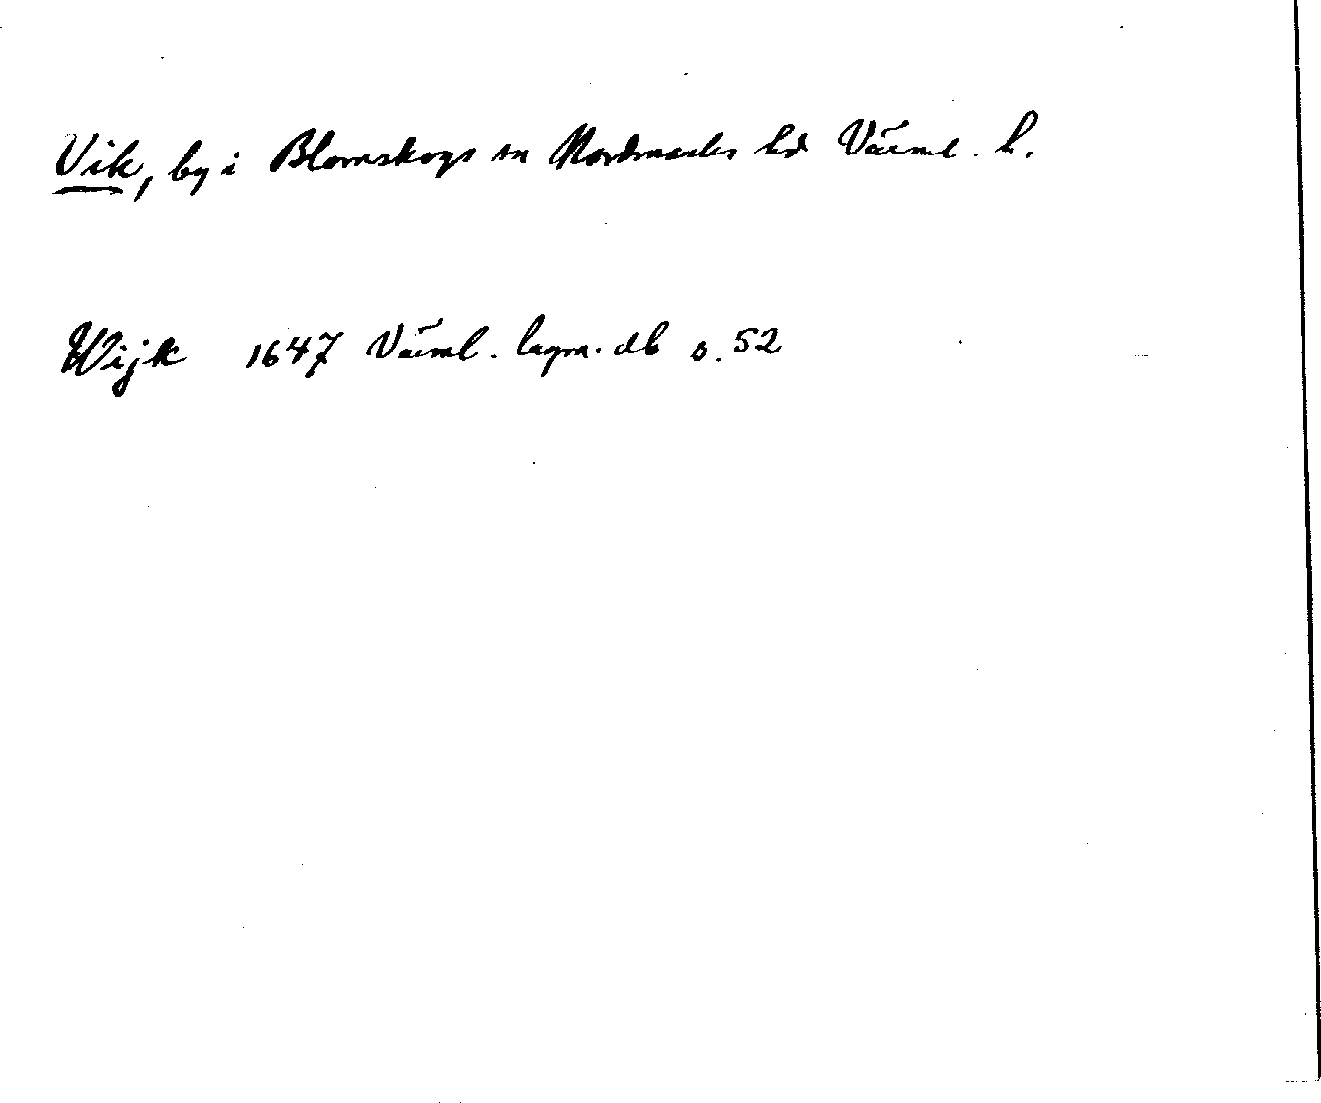 Vik, by i Blomskogs sn Nordmarks hd Värml. l.
Wijk 1647 Värml. lagm. db s. 52